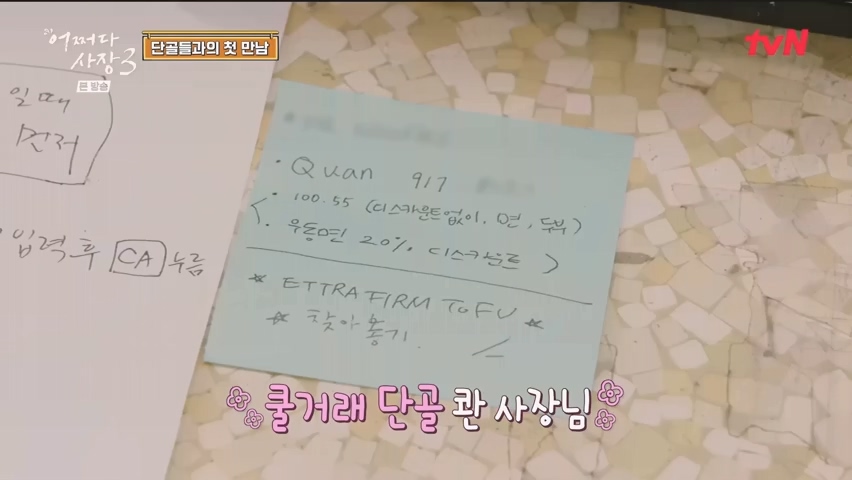 어쩌다
사장3
본 방송
단골들과의 첫 만남
tvN
일때
먼저
입력 후 CA 누름
· Quan 917
· 100.55 (디스카운트없이. 면, 두부)
· 우동면 20% 디스카운트
* ETTRA FIRM TOFU *
* 찾아놓기.
쿨거래 단골 콴 사장님